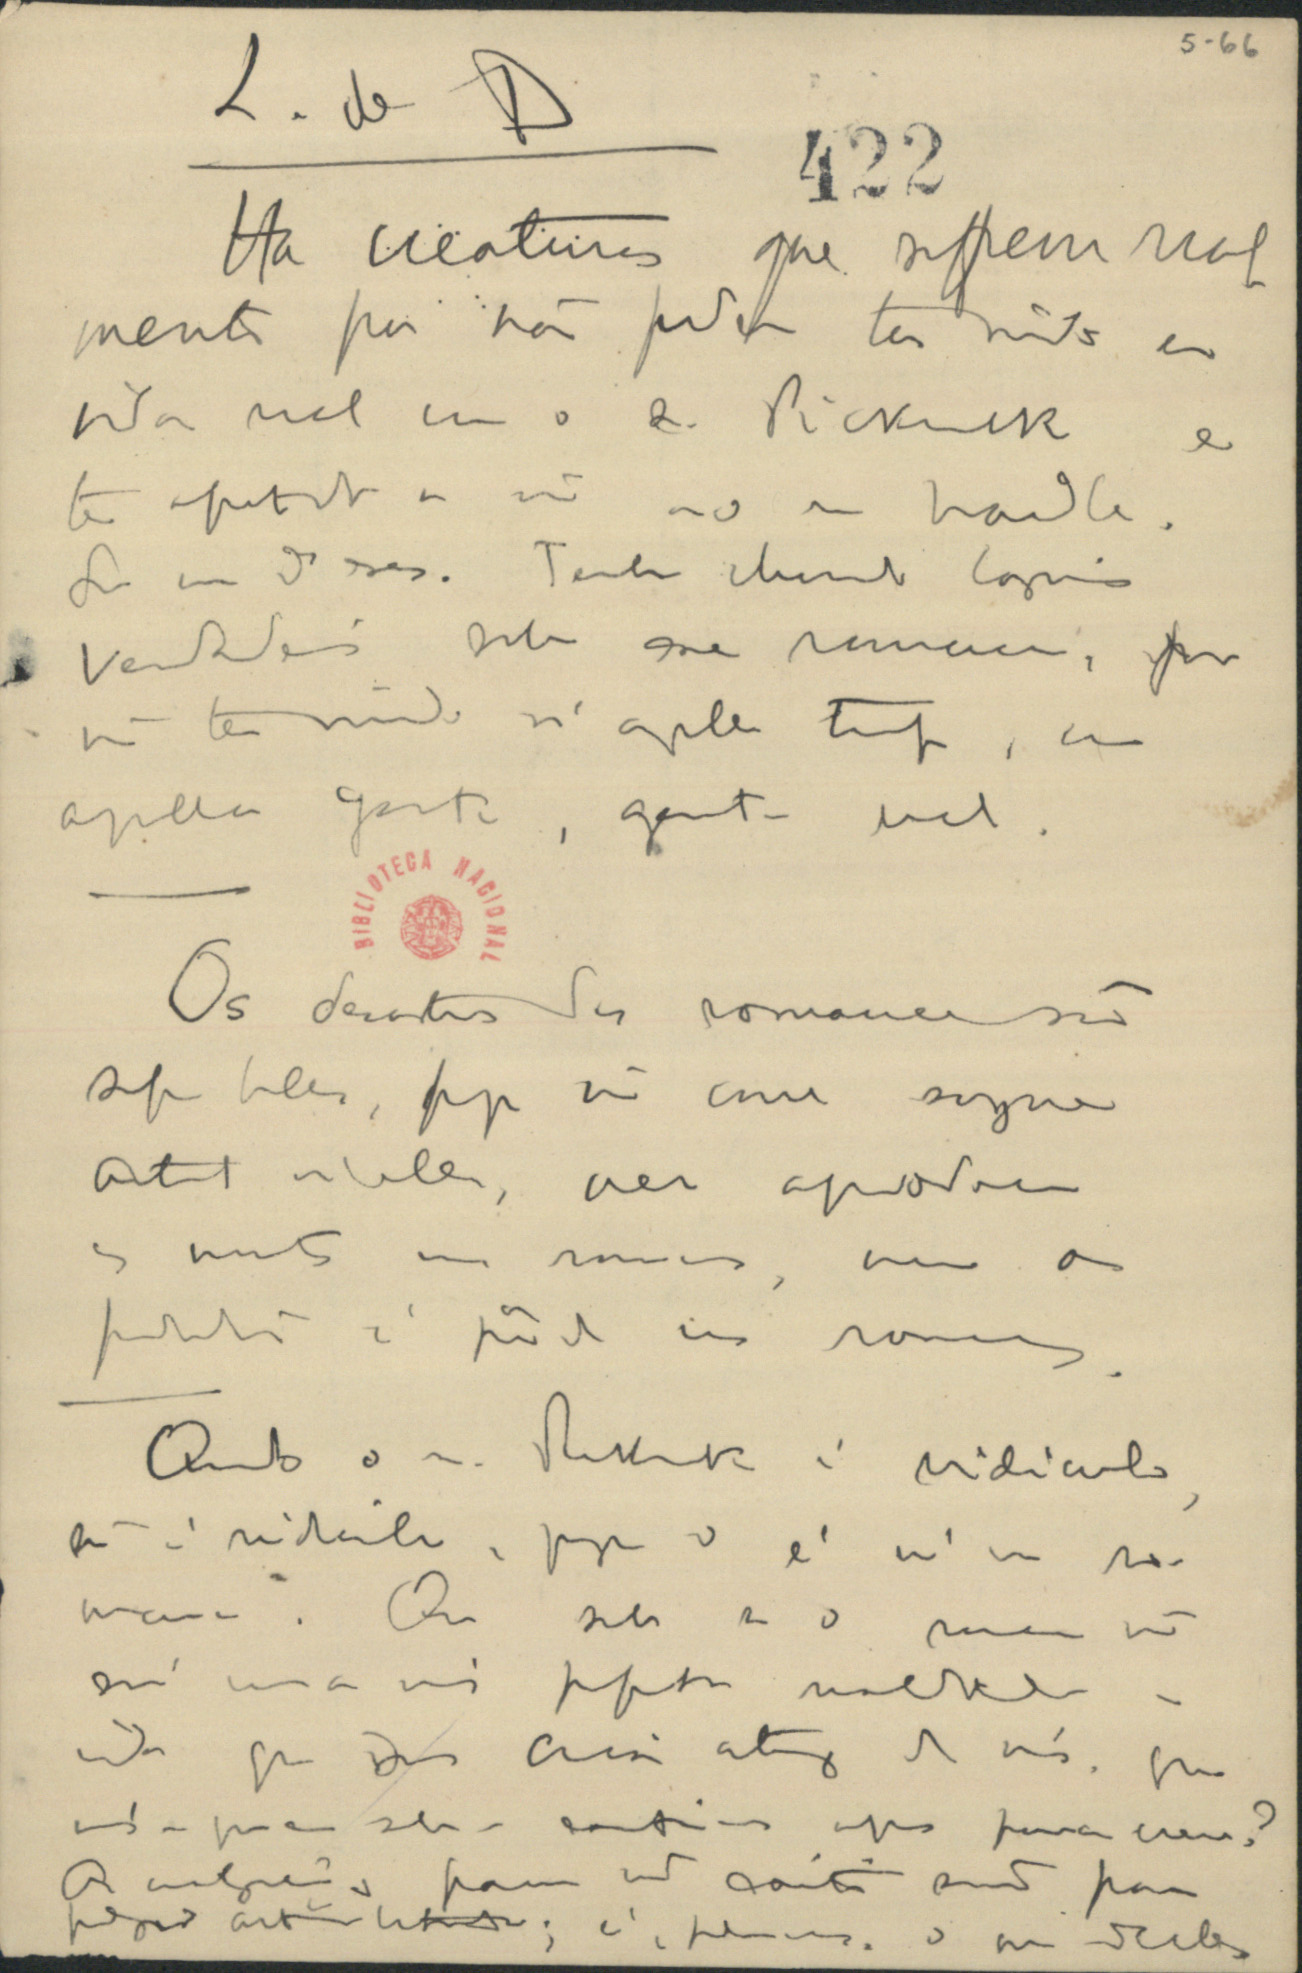 5-66
L. do D
422
Ha creaturas que soffrem real-
mente por não poder ter vivido na
vida real com o Sr. Pickwick e
ter apertado a mão ao Sr. Wardle.
Sou um d'esses. Tenho chorado lagrimas
verdadeiras sobre esse romance, por
não ter vivido n'aquelle tempo, com
aquella gente, gente real.
BIBLIOTECA NACIONAL
Os desastres dos romances são
sempre bellos, porque não corre sangue
authentico nelles, nem apodrecem
os mortos nos romances, nem a
podridão é podre nos romances.
Quando o Sr. Pickwick é ridiculo,
não é ridiculo, porque o é n'um ro-
mance. Quem sabe se o romance não
será uma mais perfeita realidade e
vida que Deus cria atravez de nós, que
nós - quem sabe - existimos apenas para crear?
As civilizações parece não existir senão para
produzir arte e litteratura; é, palavras, o que d'ellas